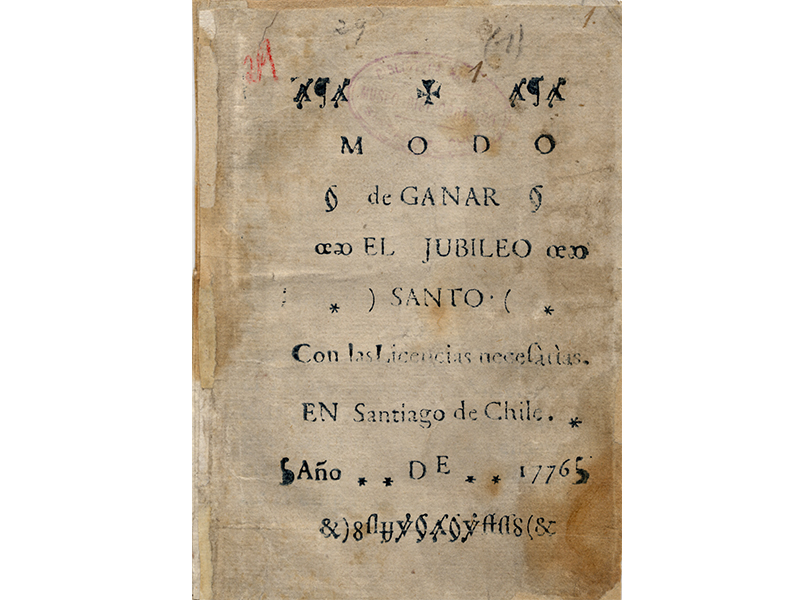 29 (1) 1.
29
1.
✠
MODO
de GANAR
EL JUBILEO
* ) SANTO· ( *
Con las Licencias neceſàrias.
EN Santiago de Chile. *
Año * * DE * * 1776